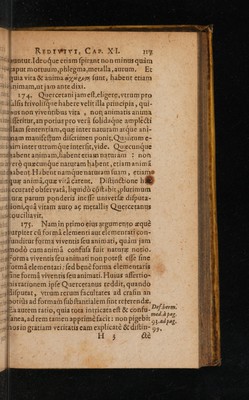 REDIVIVI, CAP. XI. 113
untur. Ideoque etiam spirant non minus quàm
caput mortuum, phlegma, metalla, aurum. Et
quia vita & anima sunt, habent etiam
animam, ut jam ante dixi.
174. Quercetani jam est, eligere, utrum pro
falsis frivolisque habere velit illa principia, qui-
bus non viventibus vita, non animatis anima
asseritur, an potius pro verâ solidaque amplecti
illam sententiam, quæ inter naturam atque ani-
mam manifestum discrimen ponit. Quantum e-
nim inter utrumque intersit, vide. Quæcunque
habent animam, habent etiam naturam: non
verò quæcunque naturam habent, etiam anima
habent. Habent namque naturam suam, etiam
quæ animâ, quæ vitâ carent. Distinctione hac
accuratè observatâ, liquidò constabit, plurimum
suæ parum ponderis inesse universæ disputa-
tioni, quâ vitam auro ac metallis Quercetanus
auciliavit.
175. Nam in primo ejus argumento æquè
turpiter cū formâ elementi aut elementari con-
funditur forma viventis seu animati, quàm jam
modò cum animâ confusa fuit naturæ ratio.
Forma viventis seu animati non potest esse sine
formâ elementari: sed benè forma elementaris
sine formâ viventis seu animati. Hujus assertio-
nis rationem ipse Quercetanus reddit, quando
disputat, virum rerum facultates ad crasin an
potiùs ad formam substantialem sint referendæ.
Ea autem ratio, quia tota intricata est & confu-
sanea, ad rem tamen apprimè facit: non pigebit
nos in gratiam veritatis eam explicatè & distin-
H 3 ctè
Def. herm.
med. à pag.
93. ad pag.
99.